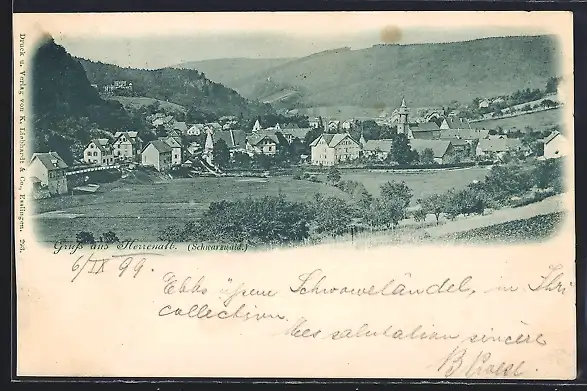 Druck u. Verlag von K. Liebhardt & Co., Esslingen. 203.
Gruß aus Herrenalb. (Schwarzwald.)
6/IX 99.
Schwoweländel, in Ihri
collection.
Mes salutation sincère